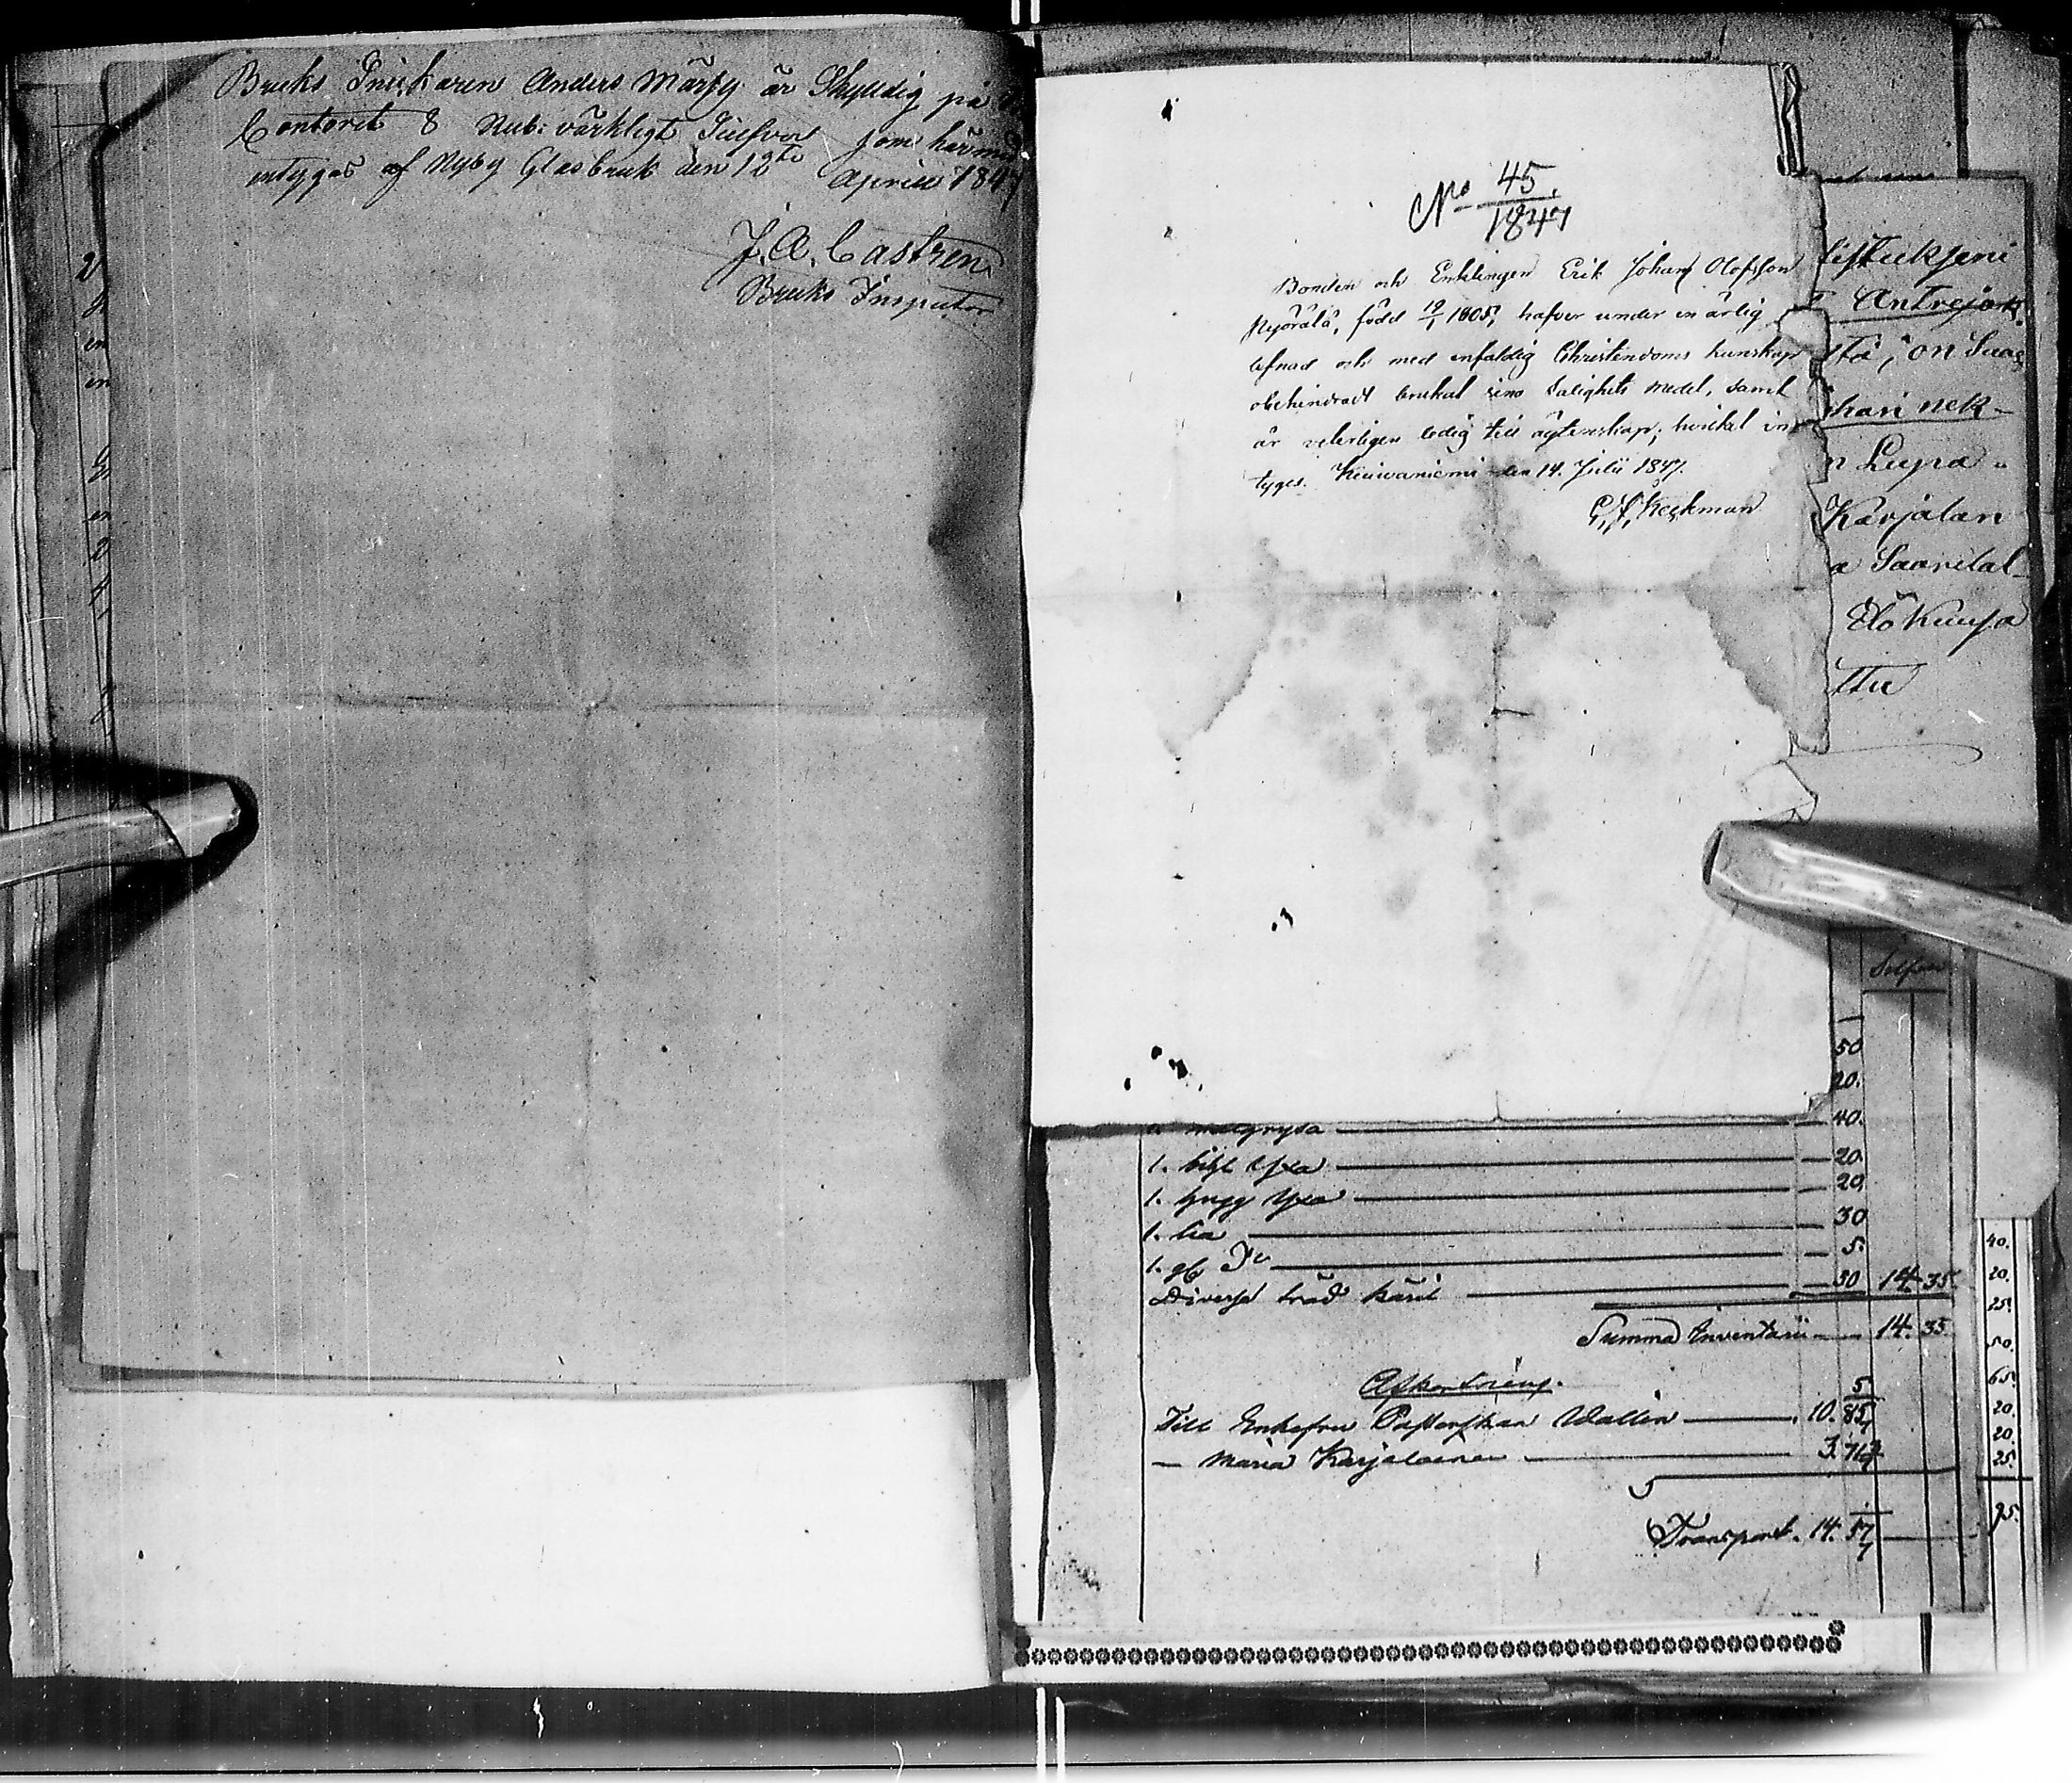 Bruks Snickaren Anders Märsy är Skylldig på
Contoret 8 Rub: värkligt Silfver som härmed
intygas af Nyby Glasbruk den 12te Aprill 1847
J. A. Castren
Bruks Inspector
No 45/1847
Bonden och Enklingen Erik Johan Olofsson
född 19/1 1805, hafver under en ärlig
lefnad och med enfaldig Christendoms kunskap
obehindradt brukat sina Salighets medel, samt
är veterligen ledig till ägtenskap; hvilket in
tyges. Kiiwaniemi den 14. Julii 1847.
Heckman
Antrejärk
on Suos
nek-
n Leypä
Karjalan
a Saaritul-
ttu
Silfver
50
20.
40.
1. bihl Yxa — 20.
1. hugg Yxa — 20
1. lia — 30
1. gl Do — 5.
Diverse träd käril — 50 14. 35.
Summa Inventarii — 14. 35.
Afkortning.
Till Enkefru Pastorskan Wallin — 10. 85 5/7
— Maria Karjalainen — 3.
Transport. 14. 57 1/7
40.
20.
25.
50.
65.
20.
20.
25.
95.